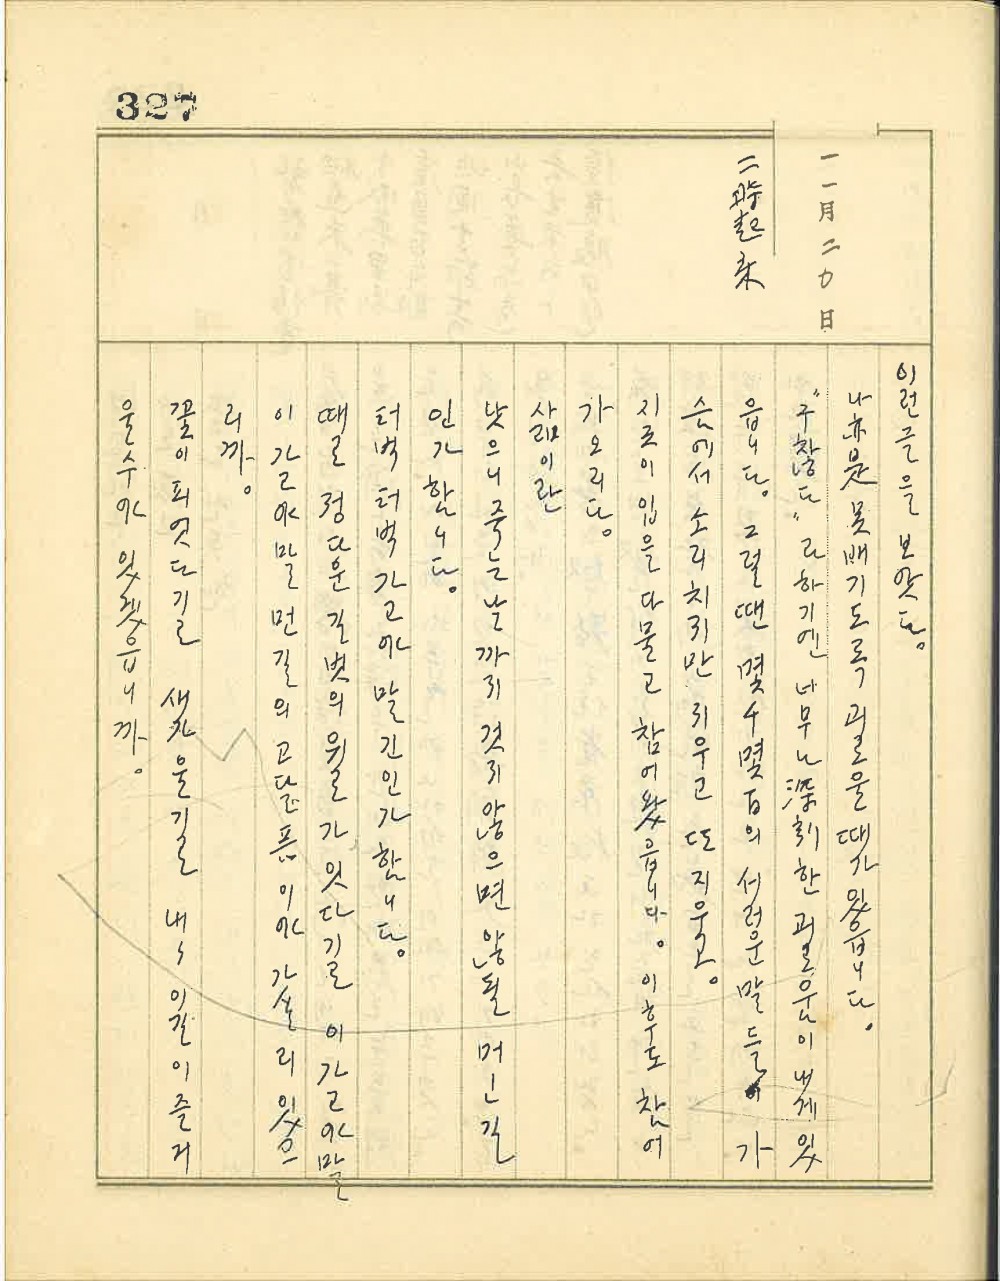 327
一一月二0日
二 꽈출 呈 來
이런글을 보앗다.
나亦是 못배기도록 괴로울때가 있읍니다.
"구찮다" 라하기엔 너무나 深刻한 괴로움이 내게 있
읍니다. 그럴땐 몇千몇百의 서러운말들이 가
슴에서 소리치지만 지우고 또 지우고.
지긋이 입을 다물고 참어 왔읍니다. 이후도 참어
가오리다.
삶이란
낫으니 죽는날까지 걷지않으면 않될 머ㅡㄴ길
인가 합니다.
터벅 터벅 가고야 말 긴인가 합니다.
때로 정다운 길벗의 위로가 잇다기로 이가고야말
이 가고야말 먼길의 고달픔이야 가실리 있으
리까.
꽃이 피엿다기로 새가 운기로 내 이길이 즐거
울수야 있겠읍니까.